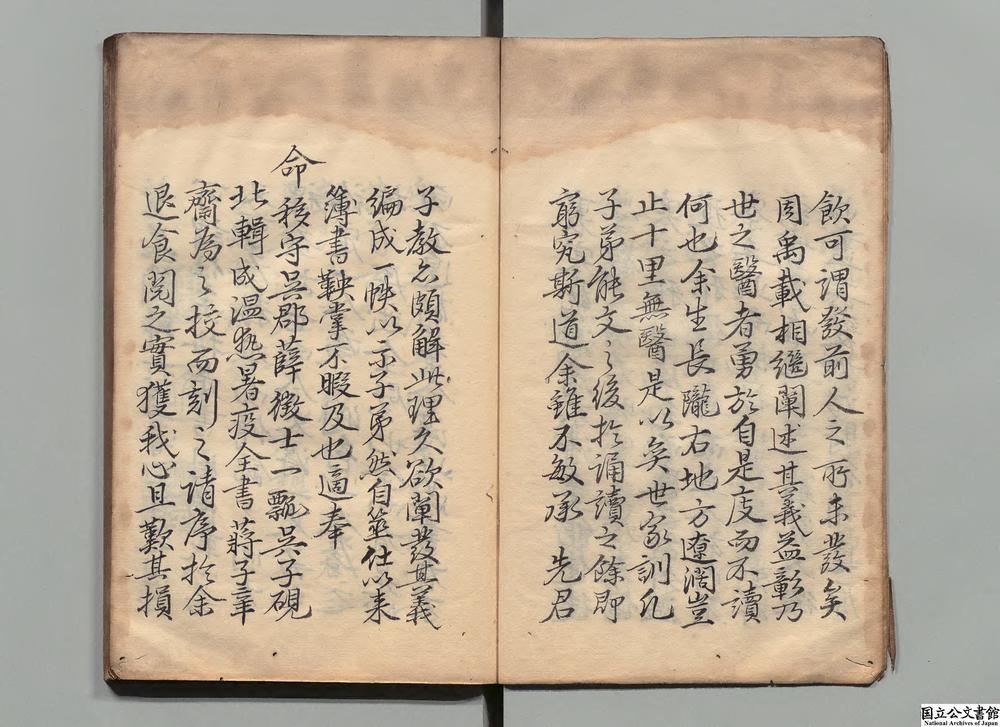 飲可謂發前人之所未發矣
周禹載相繼闡述其義益彰乃
世之醫者勇於自是庋而不讀
何也余生長隴右地方遼濶豈
止十里無醫是以矣世家訓凡
子弟能文之後於誦讀之餘即
窮究斯道余雖不敏承 先君
子教亦頗解此理久欲闡發其義
編成一帙以示子弟然自筮仕以来
簿書鞅掌不暇及也適奉
命移守吳郡薛徴士一瓢吳子硯
北輯成温熱暑疫全書蔣子葦
齋為之挍而刻之請序於余
退食閱之實獲我心且歎其損
国立公文書館
National Archives of Japan